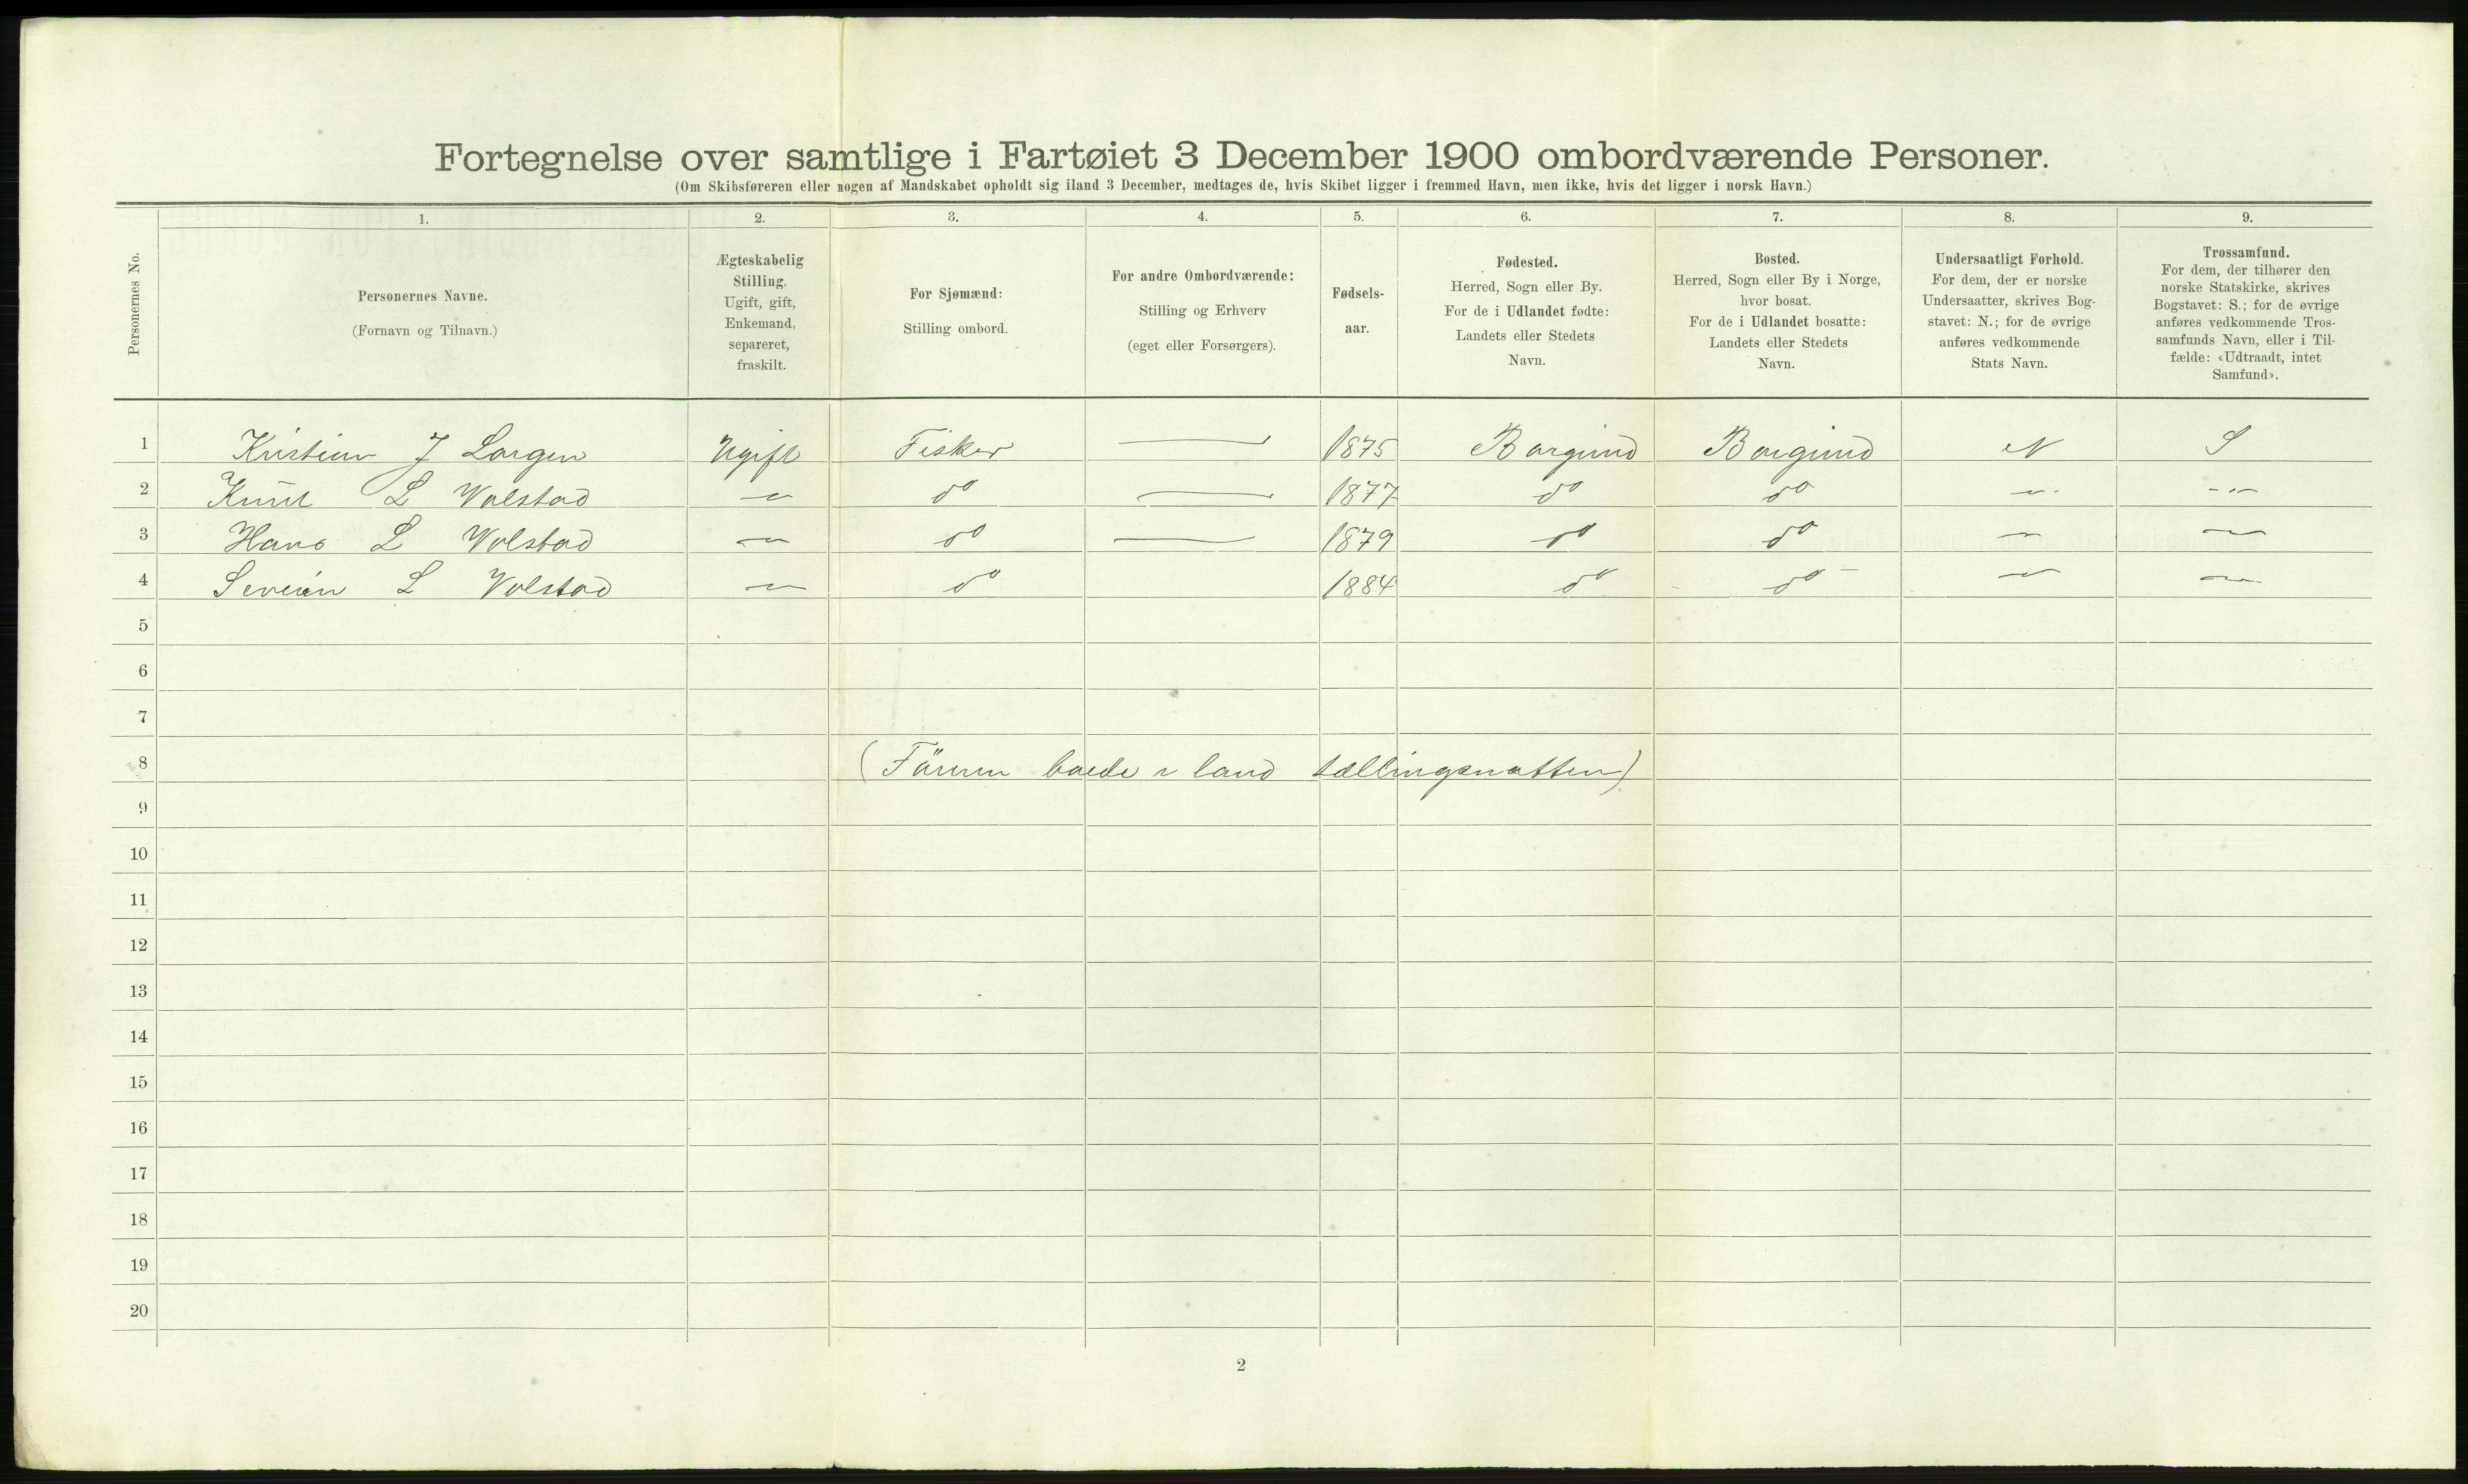 Fortegnelse over samtlige i Fartøiet 3 December 1900 ombordværende Personer.
(Om Skibsføreren eller nogen af Mandskabet opholdt sig iland 3 December, medtages de, hvis Skibet ligger i fremmed Havn, men ikke, hvis det ligger i norsk Havn.)
1. 2. 3. 4. 5. 6. 7. 8. 9.
Personernes No.
Personernes Navne.
(Fornavn og Tilnavn.)
Ægteskabelig
Stilling.
Ugift, gift,
Enkemand,
separeret,
fraskilt.
For Sjømænd:
Stilling ombord.
For andre Ombordværende:
Stilling og Erhverv
(eget eller Forsørgers).
Fødsels-
aar.
Fødested.
Herred, Sogn eller By.
For de i Udlandet fødte:
Landets eller Stedets
Navn.
Bosted.
Herred, Sogn eller By i Norge,
hvor bosat.
For de i Udlandet bosatte:
Landets eller Stedets
Navn.
Undersaatligt Forhold.
For dem, der er norske
Undersaatter, skrives Bog-
stavet: N.; for de øvrige
anføres vedkommende
Stats Navn.
Trossamfund.
For dem, der tilhører den
norske Statskirke, skrives
Bogstavet: S.; for de øvrige
anføres vedkommende Tros-
samfunds Navn, eller i Til-
fælde: «Udtraadt, intet
Samfund».
1 Kristian J Largen Ugift Fisker — 1875 Borgund Borgund N S
2 Knut L Volstad — do — 1877 do do — -"-
3 Hans L Volstad — do — 1879 do do — —
4 Severin L Volstad — do 1884 do do — —
5
6
7
8 (Föreren boede i land tællingsnatten)
9
10
11
12
13
14
15
16
17
18
19
20
2